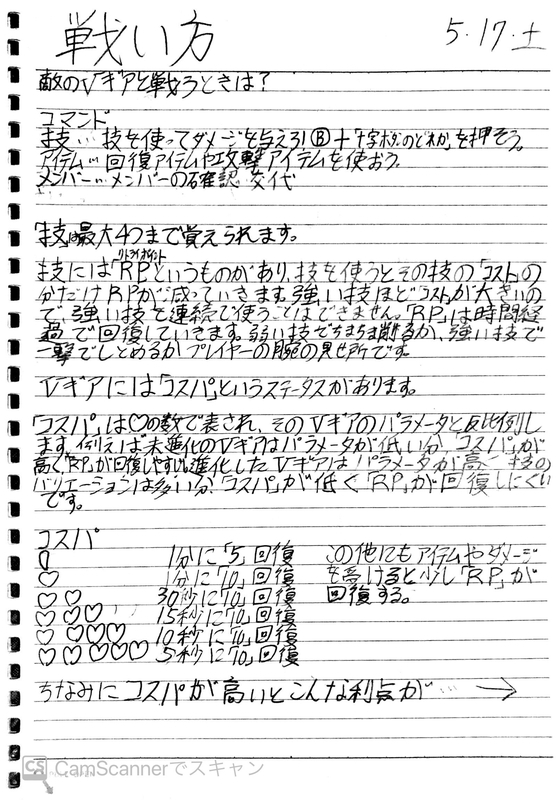 戦い方
5.17.土
敵のVギアと戦うときは？
コマンド
技… 技を使ってダメージを与えろ!Ⓑ+「十字ボタンのどれか」を押そう。
アイテム… 回復アイテムや攻撃アイテムを使おう。
メンバー… メンバーの確認 交代
技は最大4つまで覚えられます。
技には「RPというものがあり、技を使うとその技の「コスト」の
分だけRPが減っていきます。強い技ほどコストが大きいの
で、強い技を連続で使うことはできません。「RP」は時間経
過で回復していきます。弱い技でちまちま削るか、強い技で
一撃でしとめるかプレイヤーの腕の見せ所です。
Vギアには「コスパ」というステータスがあります。
「コスパ」は♡の数で表され、そのVギアのパラメータと反比例し
ます。例えば未進化のVギアはパラメータが低い分、「コスパ」が
高く「RP」が回復しやすいし、進化したVギアはパラメータが高 技の
バリエーションは多い分、「コスパ」が低く「RP」が回復しにくい
です。
コスパ
1分に「5」回復
♡ 1分に「10」回復
♡♡ 30秒に「10」回復
♡♡♡ 15秒に「10」回復
♡♡♡♡ 10秒に「10」回復
♡♡♡♡♡ 5秒に「10」回復
この他にもアイテムやダメージ
を受けると少し「RP」が
回復する。
ちなみにコスパが高いとこんな利点が… →
CS CamScannerでスキャン